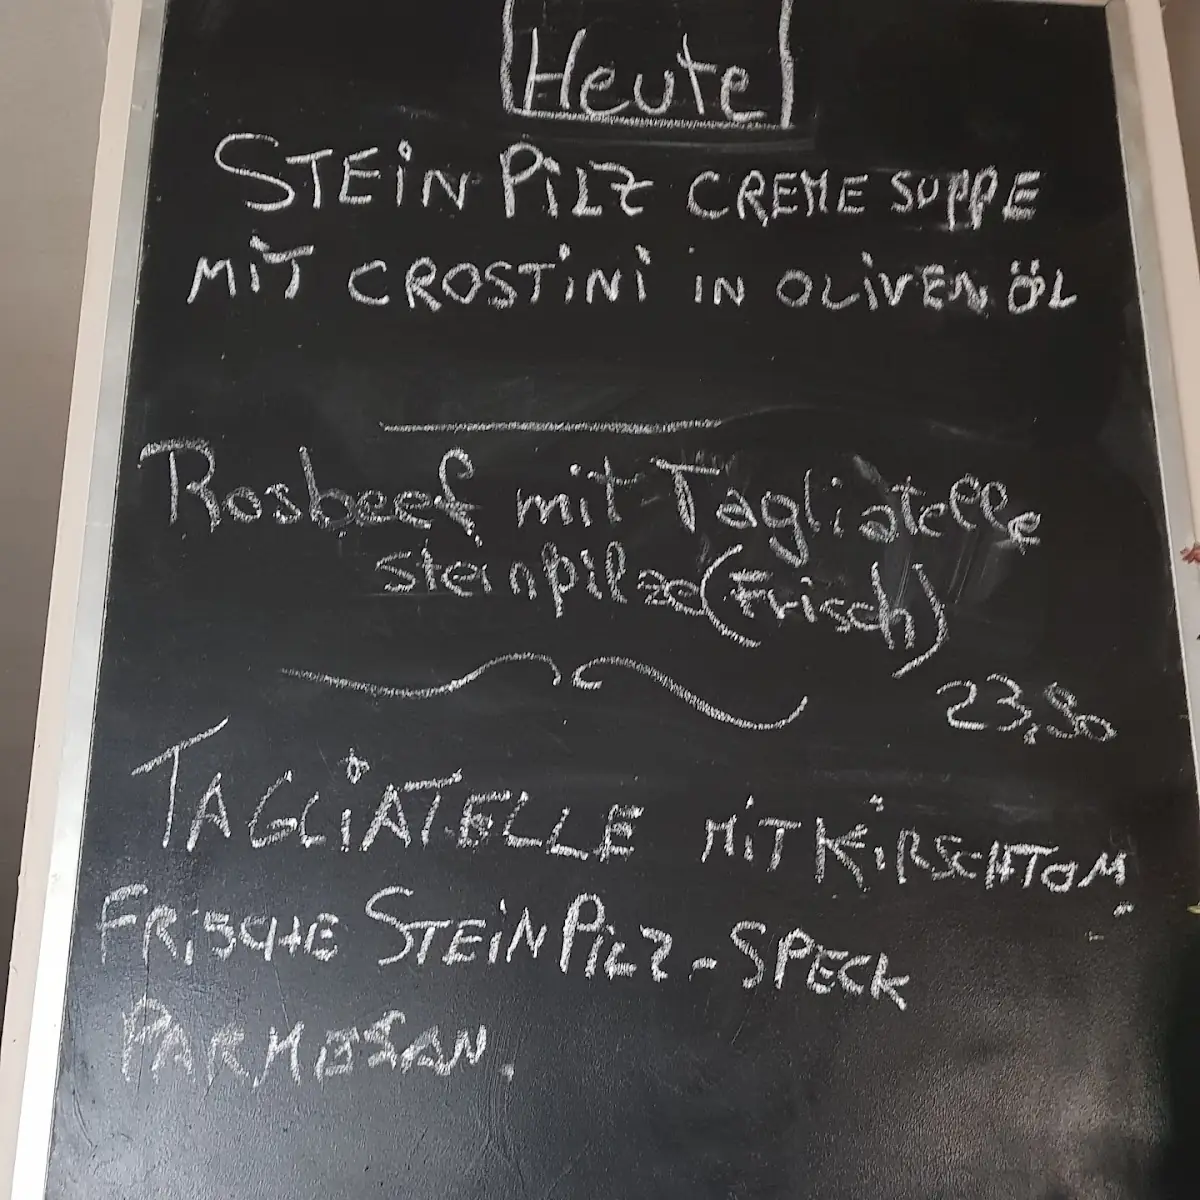 Heute
STEINPILZ CREME SUPPE
MIT CROSTINI IN OLIVEN ÖL
Rosbeef mit Tagliatelle
steinpilze (Frisch)
23,90
TAGLIATELLE MIT KIRSCHTOM.
FRISCHE STEINPILZ-SPECK
PARMESAN.